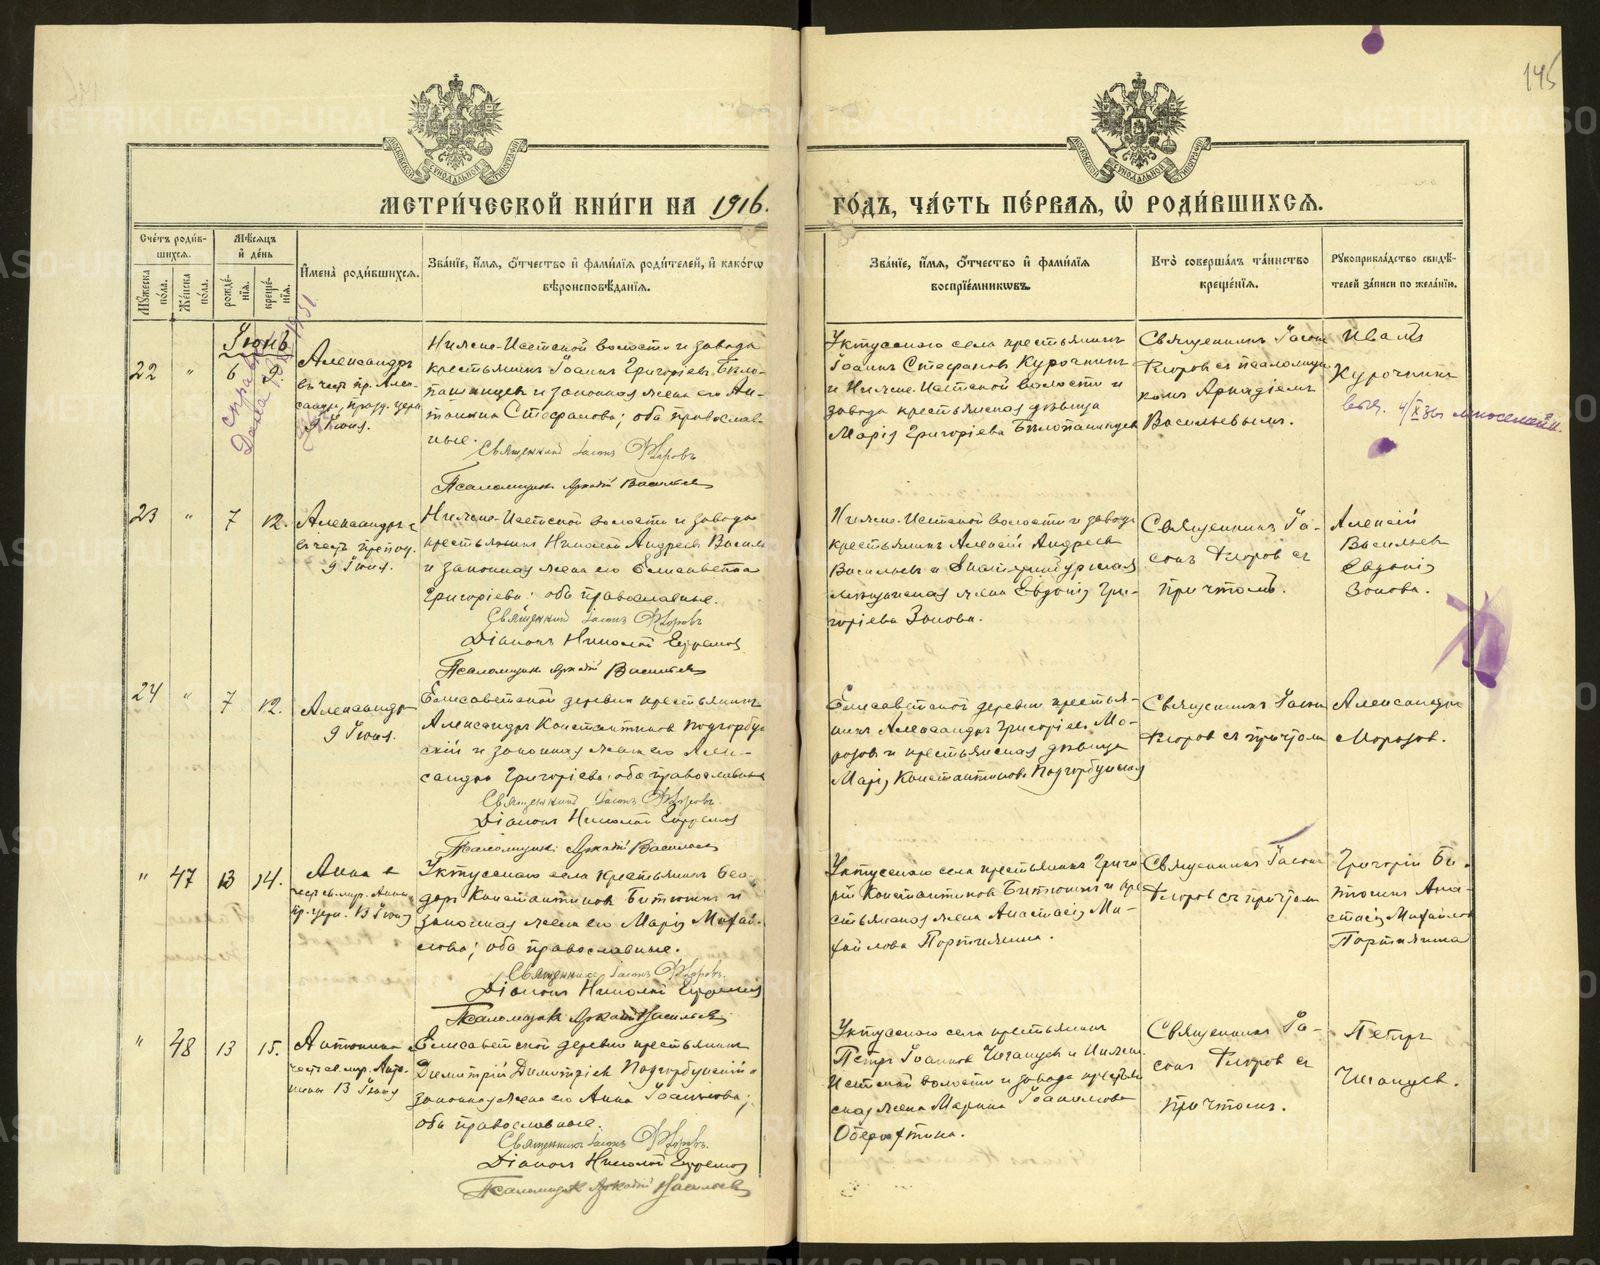 145
МОСКОВСКОЙ СѴНОДАЛЬНОЙ ТИПОГРАФІИ
МОСКОВСКОЙ СѴНОДАЛЬНОЙ ТИПОГРАФІИ
МЕТРИ́ЧЕСКОЙ КНИ́ГИ НА 1916. ГО́ДЪ, ЧА́СТЬ ПЕ́РВАЯ, Ѡ РОДИ́ВШИХСЯ.
Сче́тъ роди́в-
шихся.
Мꙋжеска по́ла.
Же́нска по́ла.
Мѣ́сяцъ и де́нь
рожде́нїя.
креще́нїя.
Имена̀ роди́вшихся.
Зва́нїе, и́мя, ѻ҆́тчество и фами́лїя роди́телей, и како́гѡ
вѣроисповѣ́данїя.
Зва́нїе, и́мя, ѻ҆́тчество и фами́лїя
воспрїе́мникѡвъ.
Кто̀ соверша́лъ та́инство
креще́нїя.
Рꙋкоприкла́дство свидѣ́-
телей за́писи по жела́нїю.
Іюнь
22 " 6 9
Александръ
въ честь пр. Алек-
9 Іюня.
Нижне-Исетской волости и завода
крестьянинъ Іоаннъ Григорьевъ Бѣло-
пашинцевъ и законная жена его Ан-
тонина Стефанова; оба православ-
ные.
Священникъ Іасонъ Ѳлоровъ
Псаломщикъ Аркадій Васильевъ
Уктусскаго села крестьянинъ
Іоаннъ Стефановъ Курочкинъ
и Нижне-Исетской волости и
завода крестьянская дѣвица
Марія Григорьева Бѣлопашинцева
Священникъ Іасонъ
Флоровъ съ псаломщи-
комъ Аркадіемъ
Васильевымъ.
Иванъ
Курочкинъ
справка
Дана
23 " 7 12.
Александръ
въ честь препод.
9 Іюня.
Нижне-Исетской волости и завода
крестьянинъ Николай Андреевъ Василь
и законная жена его Елисавета
Григорьева; оба православные.
Священникъ Іасонъ Ѳлоровъ
Діаконъ Николай Ефремовъ
Псаломщикъ Аркадій Васильевъ
Нижне-Исетской волости и завода
крестьянинъ Алексій Андреевъ
Васильевъ и Екатеринбургская
мѣщанская жена Евдокія Гри-
горьева Зонова.
Священникъ Іа-
сонъ Флоровъ съ
причтомъ.
Алексій
Васильевъ
Евдокія
Зонова.
24 " 7 12.
Александръ
9 Іюня.
Елисаветской деревни крестьянинъ
Александръ Константиновъ Подгорбун-
скій и законная жена его Алек-
сандра Григорьева; оба православные
Священникъ Іасонъ Ѳлоровъ.
Діаконъ Николай Ефремовъ
Псаломщикъ Аркадій Васильевъ
Елисаветской деревни крестья-
нинъ Александръ Григорьевъ Мо-
розовъ и крестьянская дѣвица
Марія Константинова Подгорбунская
Священникъ Іасонъ
Флоровъ съ причтомъ
Александръ
Морозовъ.
" 47 13 14.
Анна въ
13 Іюня
Уктусскаго села крестьянинъ Ѳео-
доръ Константиновъ Битюкинъ и
законная жена его Марія Михай-
лова; оба православные.
Священникъ Іасонъ Ѳлоровъ.
Діаконъ Николай Ефремовъ
Псаломщикъ Аркадій Васильевъ
Уктусскаго села крестьянинъ Григо-
рій Константиновъ Битюкинъ и кре-
стьянская жена Анастасія Ми-
хайлова Портнягина.
Священникъ Іасонъ
Флоровъ съ причтомъ
Григорій Би-
тюкинъ Ана-
стасія Михайлова
Портнягина
" 48 13 15.
Антонина въ
честь св. мц. Анто-
нины 13 Іюня
Елисаветской деревни крестьянинъ
Димитрій Димитріевъ Подгорбунскій и
законная жена его Анна Іоакимова;
оба православные.
Священникъ Іасонъ Ѳлоровъ.
Діаконъ Николай Ефремовъ
Псаломщикъ Аркадій Васильевъ
Уктусскаго села крестьянинъ
Петръ Іоанновъ Чеганцевъ и Нижне-
Исетской волости и завода крестьян-
ская жена Марина Іоакимова
Священникъ Іа-
сонъ Флоровъ съ
причтомъ.
Петръ
Чеганцевъ.
METRIKI.GASO-URAL.RU